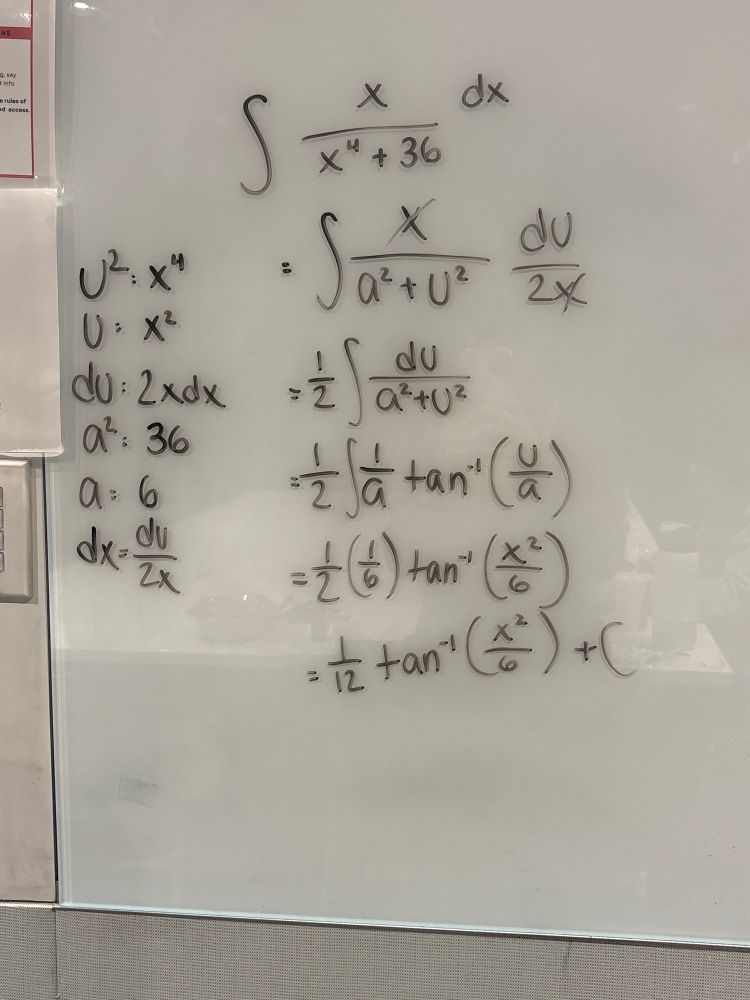 NS
g, say
t info
e rules of
d access.
∫ x/(x⁴ + 36) dx
U² : x⁴
U : x²
du : 2xdx
a² : 36
a : 6
dx = du/2x
= ∫ x/(a² + U²) du/2x
= 1/2 ∫ du/(a² + U²)
= 1/2 ∫ 1/a tan⁻¹ (U/a)
= 1/2 (1/6) tan⁻¹ (x²/6)
= 1/12 tan⁻¹ (x²/6) + C